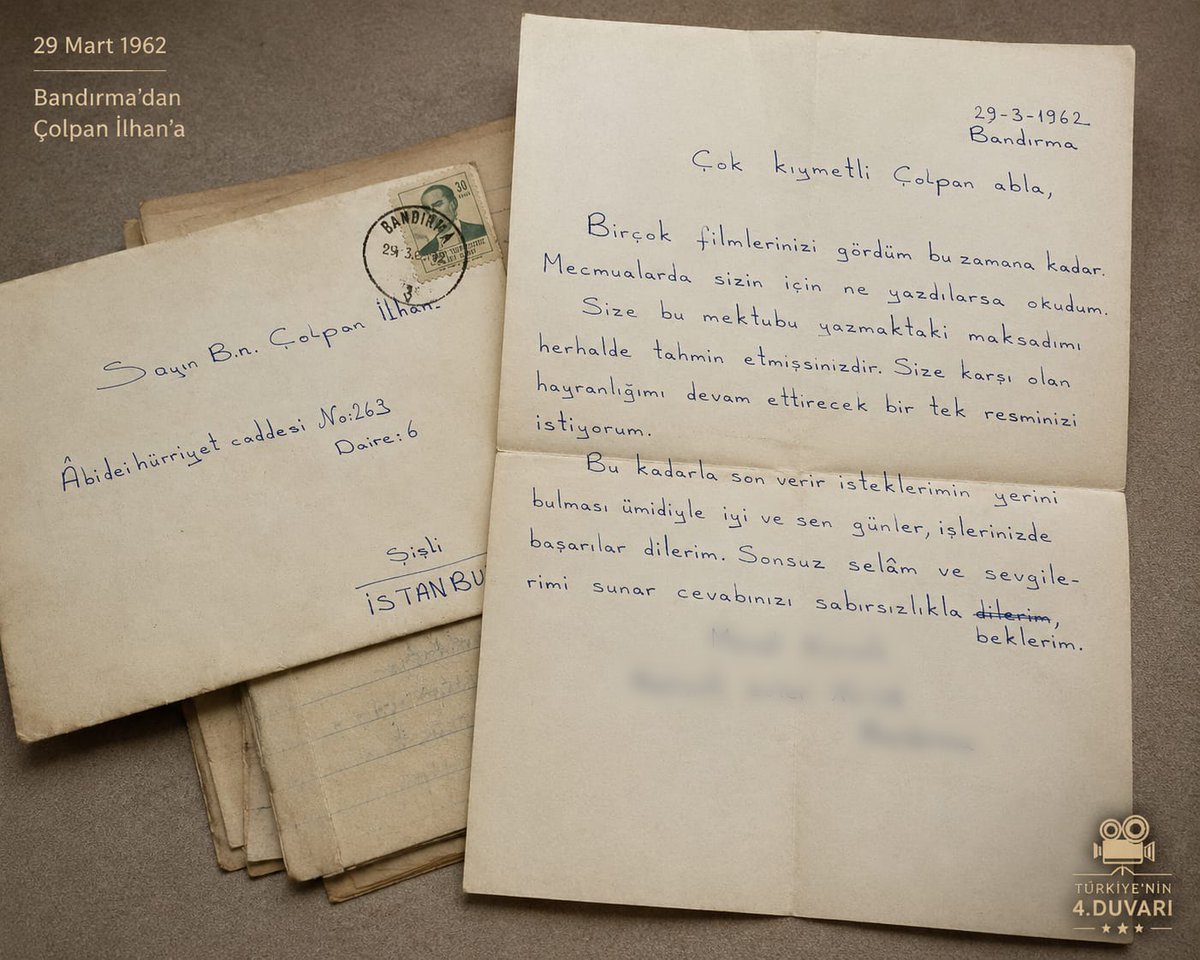 29 Mart 1962
Bandırma’dan
Çolpan İlhan’a
30
BANDIRMA
29 3.6
3
Sayın B.n. Çolpan İlhan.
Âbideihürriyet caddesi No:263
Daire:6
Şişli
İSTANBU
29-3-1962
Bandırma
Çok kıymetli Çolpan abla,
Birçok filmlerinizi gördüm bu zamana kadar.
Mecmualarda sizin için ne yazdılarsa okudum.
Size bu mektubu yazmaktaki maksadımı
herhalde tahmin etmişsinizdir. Size karşı olan
hayranlığımı devam ettirecek bir tek resminizi
istiyorum.
Bu kadarla son verir isteklerimin yerini
bulması ümidiyle iyi ve sen günler, işlerinizde
başarılar dilerim. Sonsuz selâm ve sevgile-
rimi sunar cevabınızı sabırsızlıkla dilerim,
beklerim.
TÜRKİYE'NİN
4.DUVARI